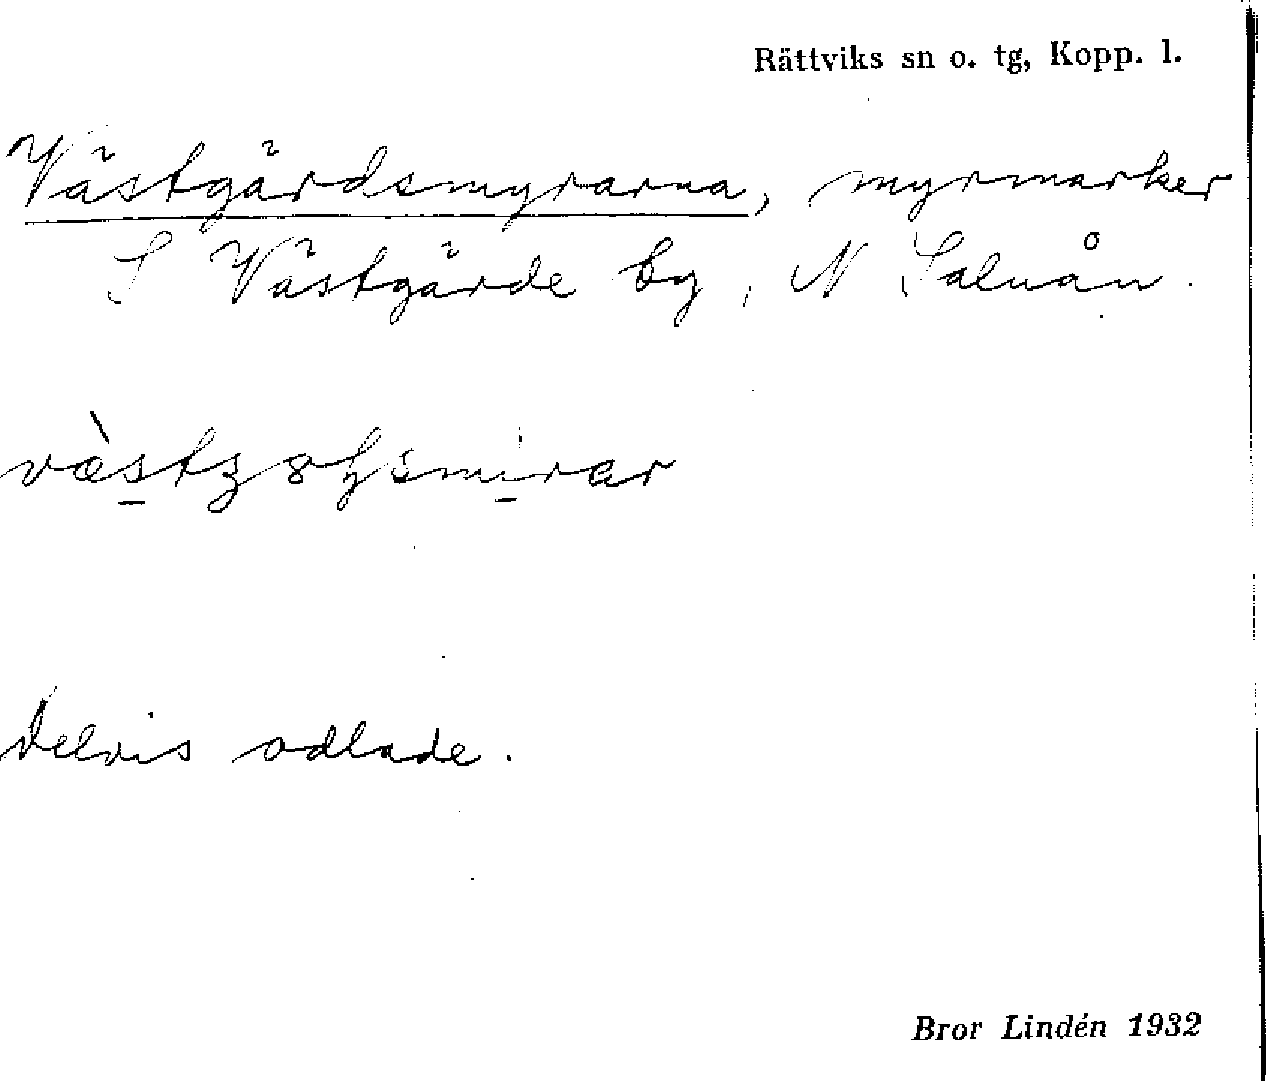 Rättviks sn o. tg, Kopp. l.
Västgärdsmyrarna, myrmarker
S Västgärde by, N Saluån.
Delvis odlade.
Bror Lindén 1932